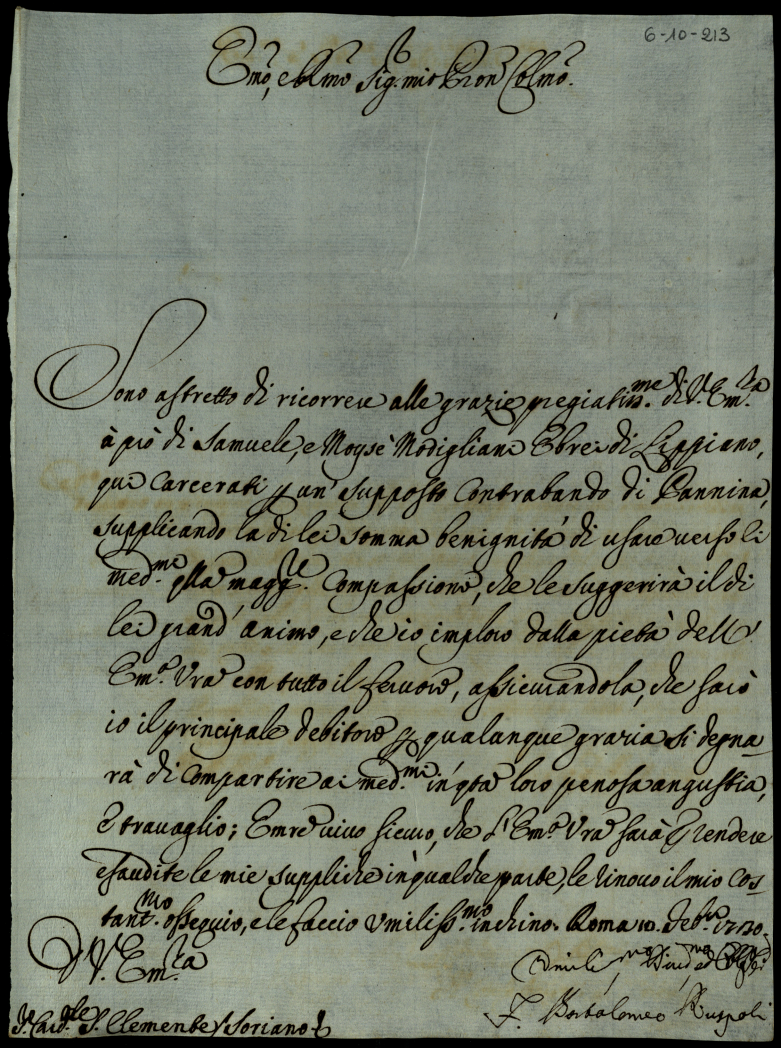 6-10-213
Em̃o, e Rm̃o Sig. mio Pron Colm̃o.
Sono astretto di ricorrere alle grazie pregiatis.me di V. Em.za
à prò di Samuele, e Moysè Modigliani Ebrei di Lippiano,
qui carcerati p un' supposto Contrabando di Pannina,
supplicando la di lei somma benignità di usare verso li
med.mi q̃lla magg.re Compassione, che le suggerirà il di
lei grand' animo, e che io imploro dalla pietà dell'
Em.a Vra con tutto il fervore, assicurandola, che sarò
io il principale debitore p qualunque grazia si degna_
rà di compartire ai med.mi in q̃ta loro penosa angustia,
e travaglio; E mre vivo sicuro, che l'Em.a Vra sarà p rendere
esaudite le mie suppliche in qualche parte, le rinovo il mio cos_
tant.mo ossequio, e le faccio umiliss.mo inchino. Roma 10. Feb.ro
D V. Em.za
S. Card.le S. Clemente / Soriano
F. Bartolomeo Ruspoli